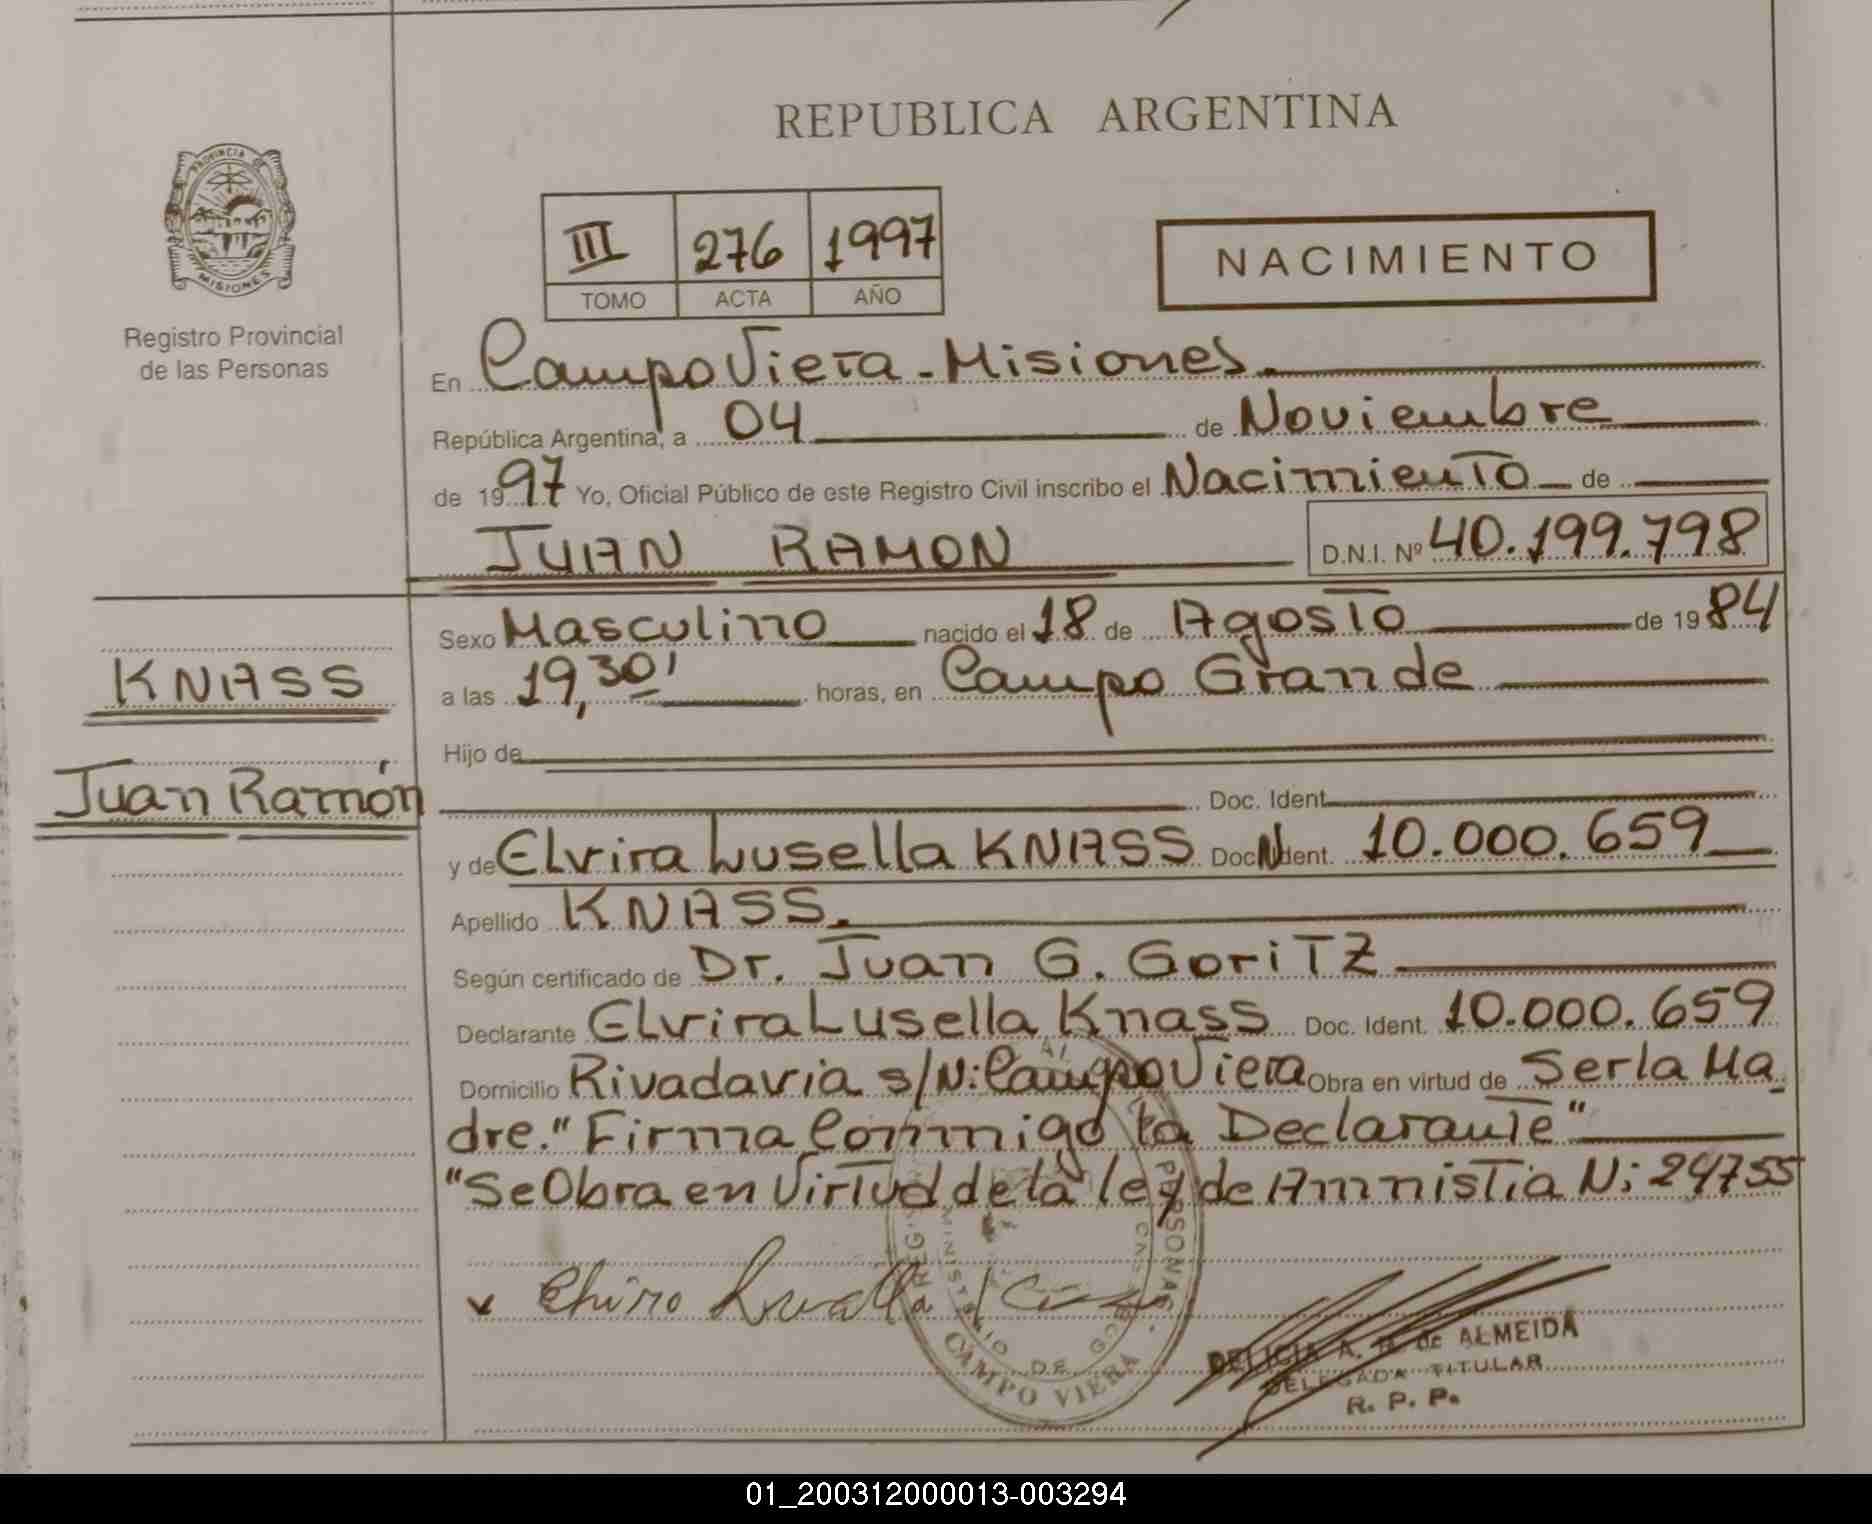 REPUBLICA ARGENTINA
PROVINCIA DE
MISIONES
Registro Provincial
de las Personas
III 276 1997
TOMO ACTA AÑO
NACIMIENTO
En Campo Viera - Misiones.
República Argentina, a 04 de Noviembre
de 1997 Yo, Oficial Público de este Registro Civil inscribo el Nacimiento de
JUAN RAMON D.N.I. Nº 40.199.798
Sexo Masculino nacido el 18 de Agosto de 1984
KNASS
a las 19,30' horas, en Campo Grande
Hijo de
Juan Ramón
Doc. Ident.
y de Elvira Lusella KNASS Doc. Ident. 10.000.659
Apellido KNASS.
Según certificado de Dr. Juan G. GoriTZ
Declarante Elvira Lusella Knass Doc. Ident. 10.000.659
Domicilio Rivadavia s/N: Campo Viera Obra en virtud de Ser la Ma-
dre." Firma Conmigo la Declarante"
"Se Obra en Virtud de la ley de Amnistia N: 24755
PERSONAS
MINISTERIO DE GOB
CAMPO VIERA
DELICIA A. R. de ALMEIDA
DELEGADA TITULAR
R. P. P.
01_200312000013-003294